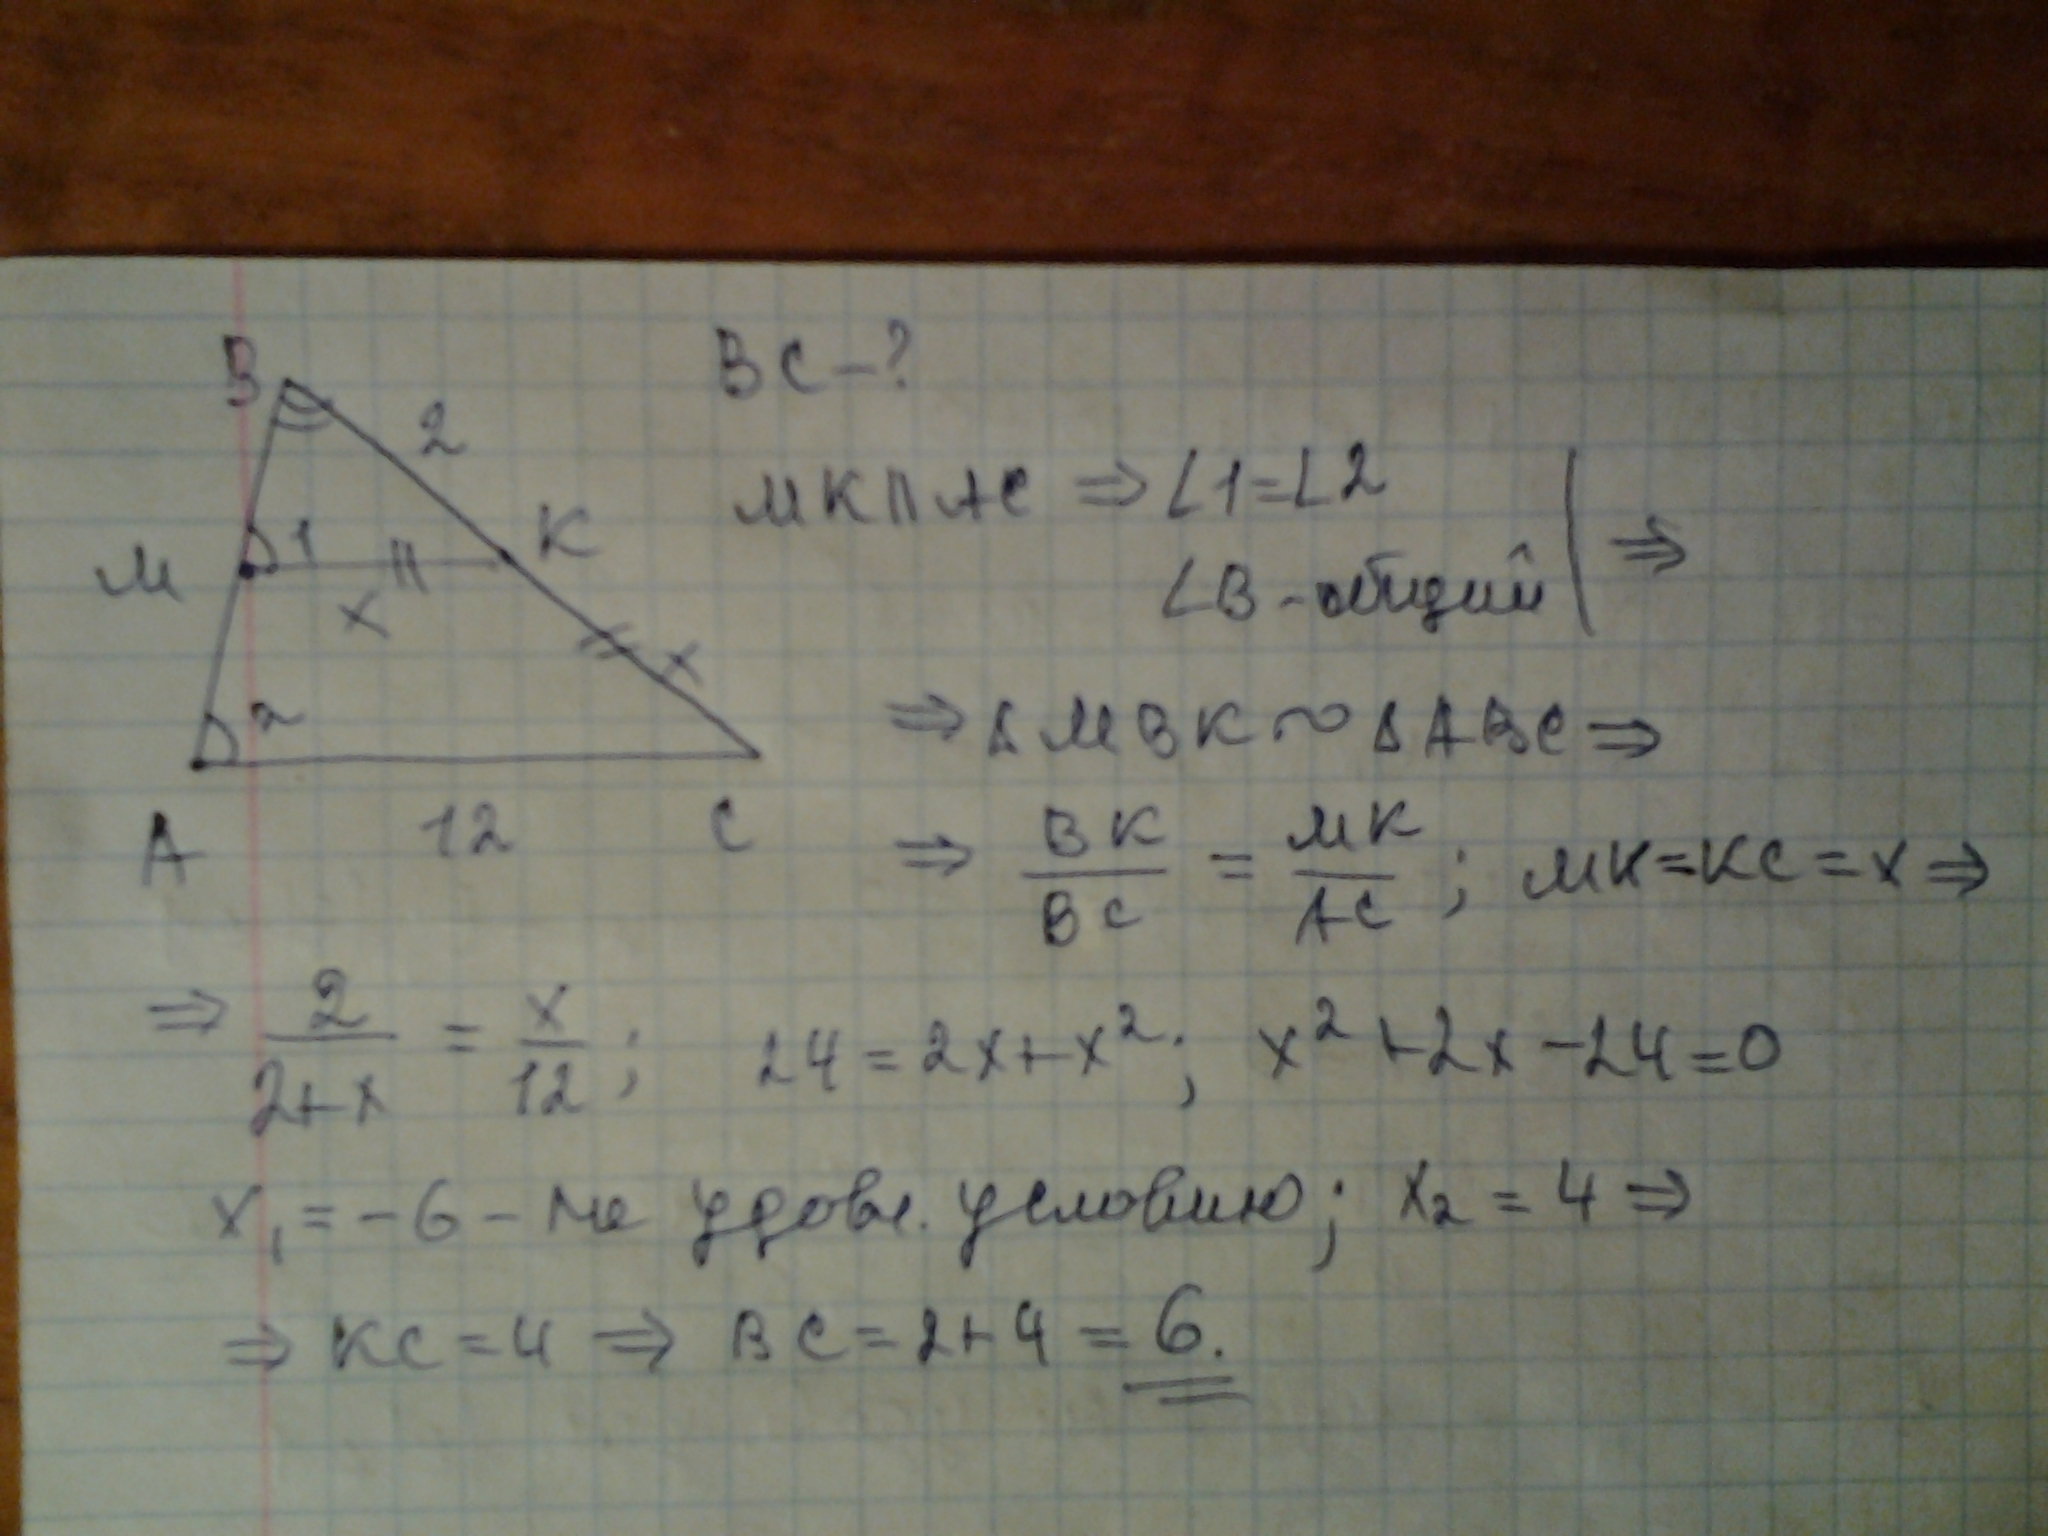 B
2
M
1
K
x
x
2
A
12
C
BC - ?
MK || AC ⇒ ∠1 = ∠2
∠B - общий ⇒
⇒ Δ MBK ~ Δ ABC ⇒
⇒ BK/BC = MK/AC ; MK = KC = x ⇒
⇒ 2/(2+x) = x/12 ; 24 = 2x + x² ; x² + 2x - 24 = 0
x₁ = -6 - не удовл. условию ; x₂ = 4 ⇒
⇒ KC = 4 ⇒ BC = 2+4 = 6.